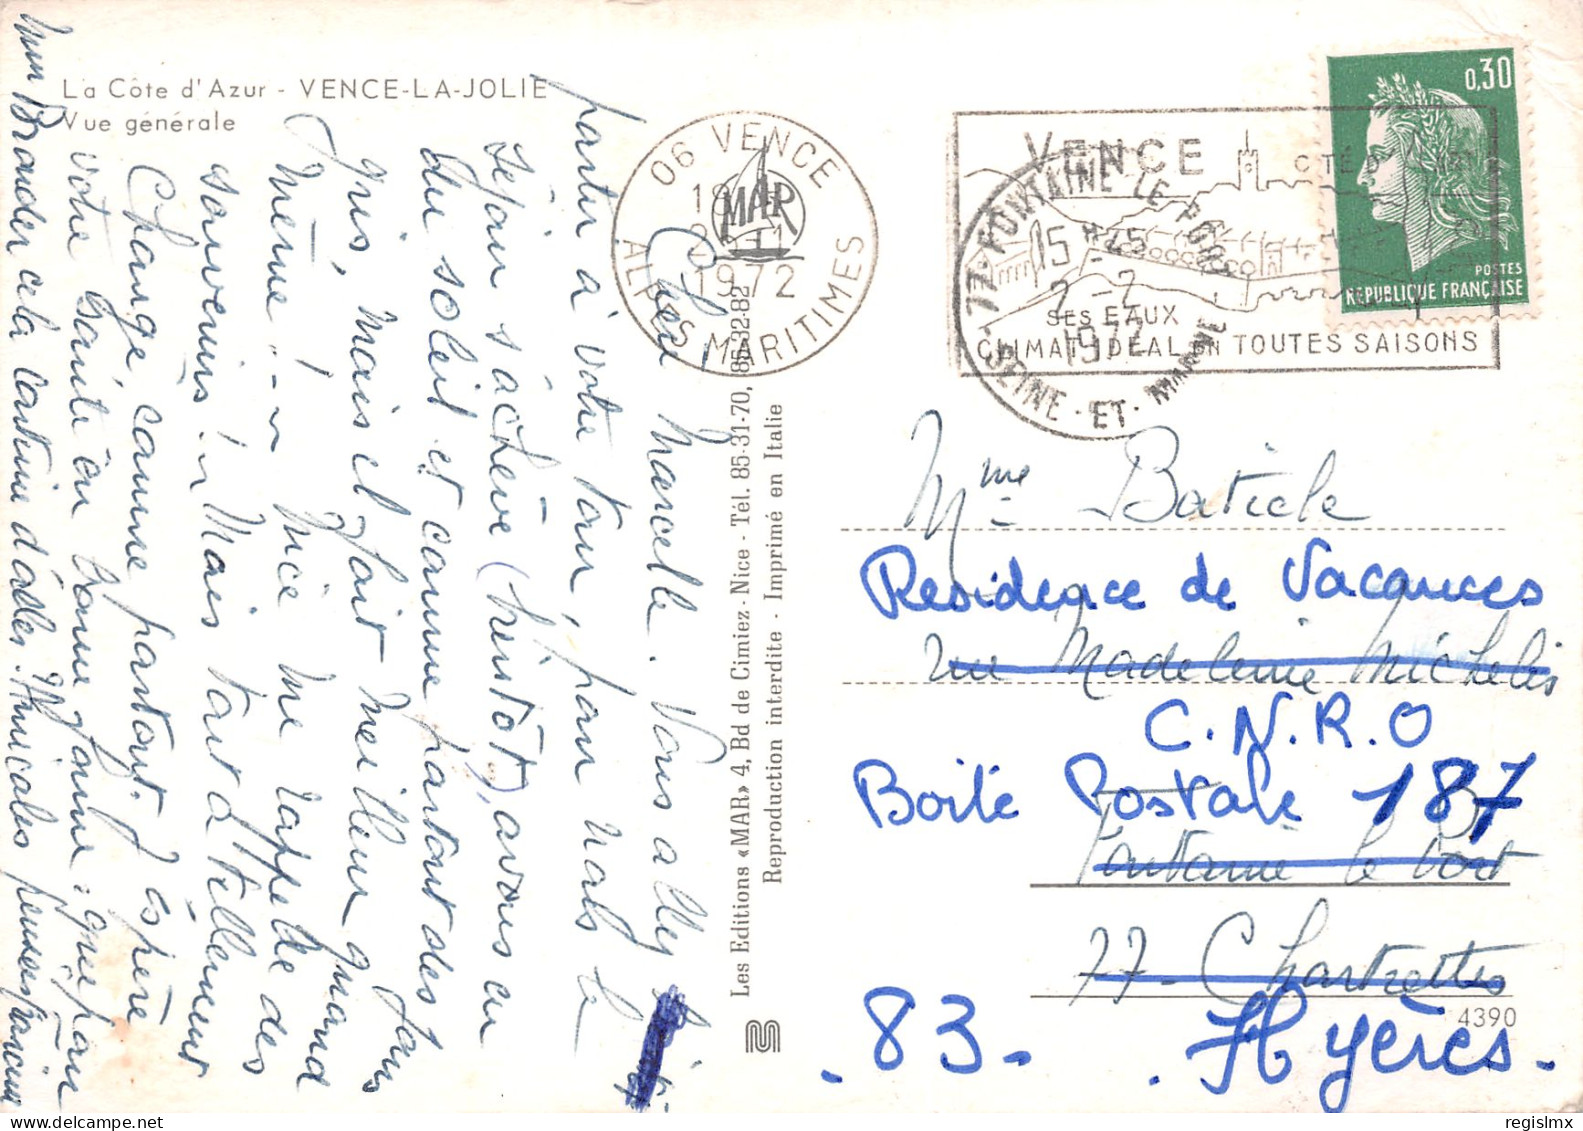 La Côte d'Azur - VENCE-LA-JOLIE
Vue générale
Chère Marcelle. Vous allez
partir à votre tour, pour nous le
séjour s'achève (bientôt), avons eu
du soleil et comme partout des jours
gris, mais il fait meilleur quand
même !... Nice me rappelle des
souvenirs !.. Mais tout a tellement
changé comme partout. J'espère
votre santé en bonne forme, que
cela continue d'aller. Amicales pensées
Les Editions «MAR» 4, Bd de Cimiez - Nice - Tél. 85-31-70, 85-32-82
Reproduction interdite - Imprimé en Italie
MAR
06 VENCE
18
1972
ALPES MARITIMES
VENCE
SES EAUX
CLIMAT IDEAL EN TOUTES SAISONS
77-FONTAINE LE PORT
15 H 45
2 - 2
1972
SEINE-ET-MARNE
0,30
POSTES
REPUBLIQUE FRANÇAISE
Mme Baticle
Residence de Vacances
rue Madeleine Michelis
C.N.R.O
Boite Postale 187
Fontaine le Port
77-Chartrettes
83- Hyères.
4390
regislmx